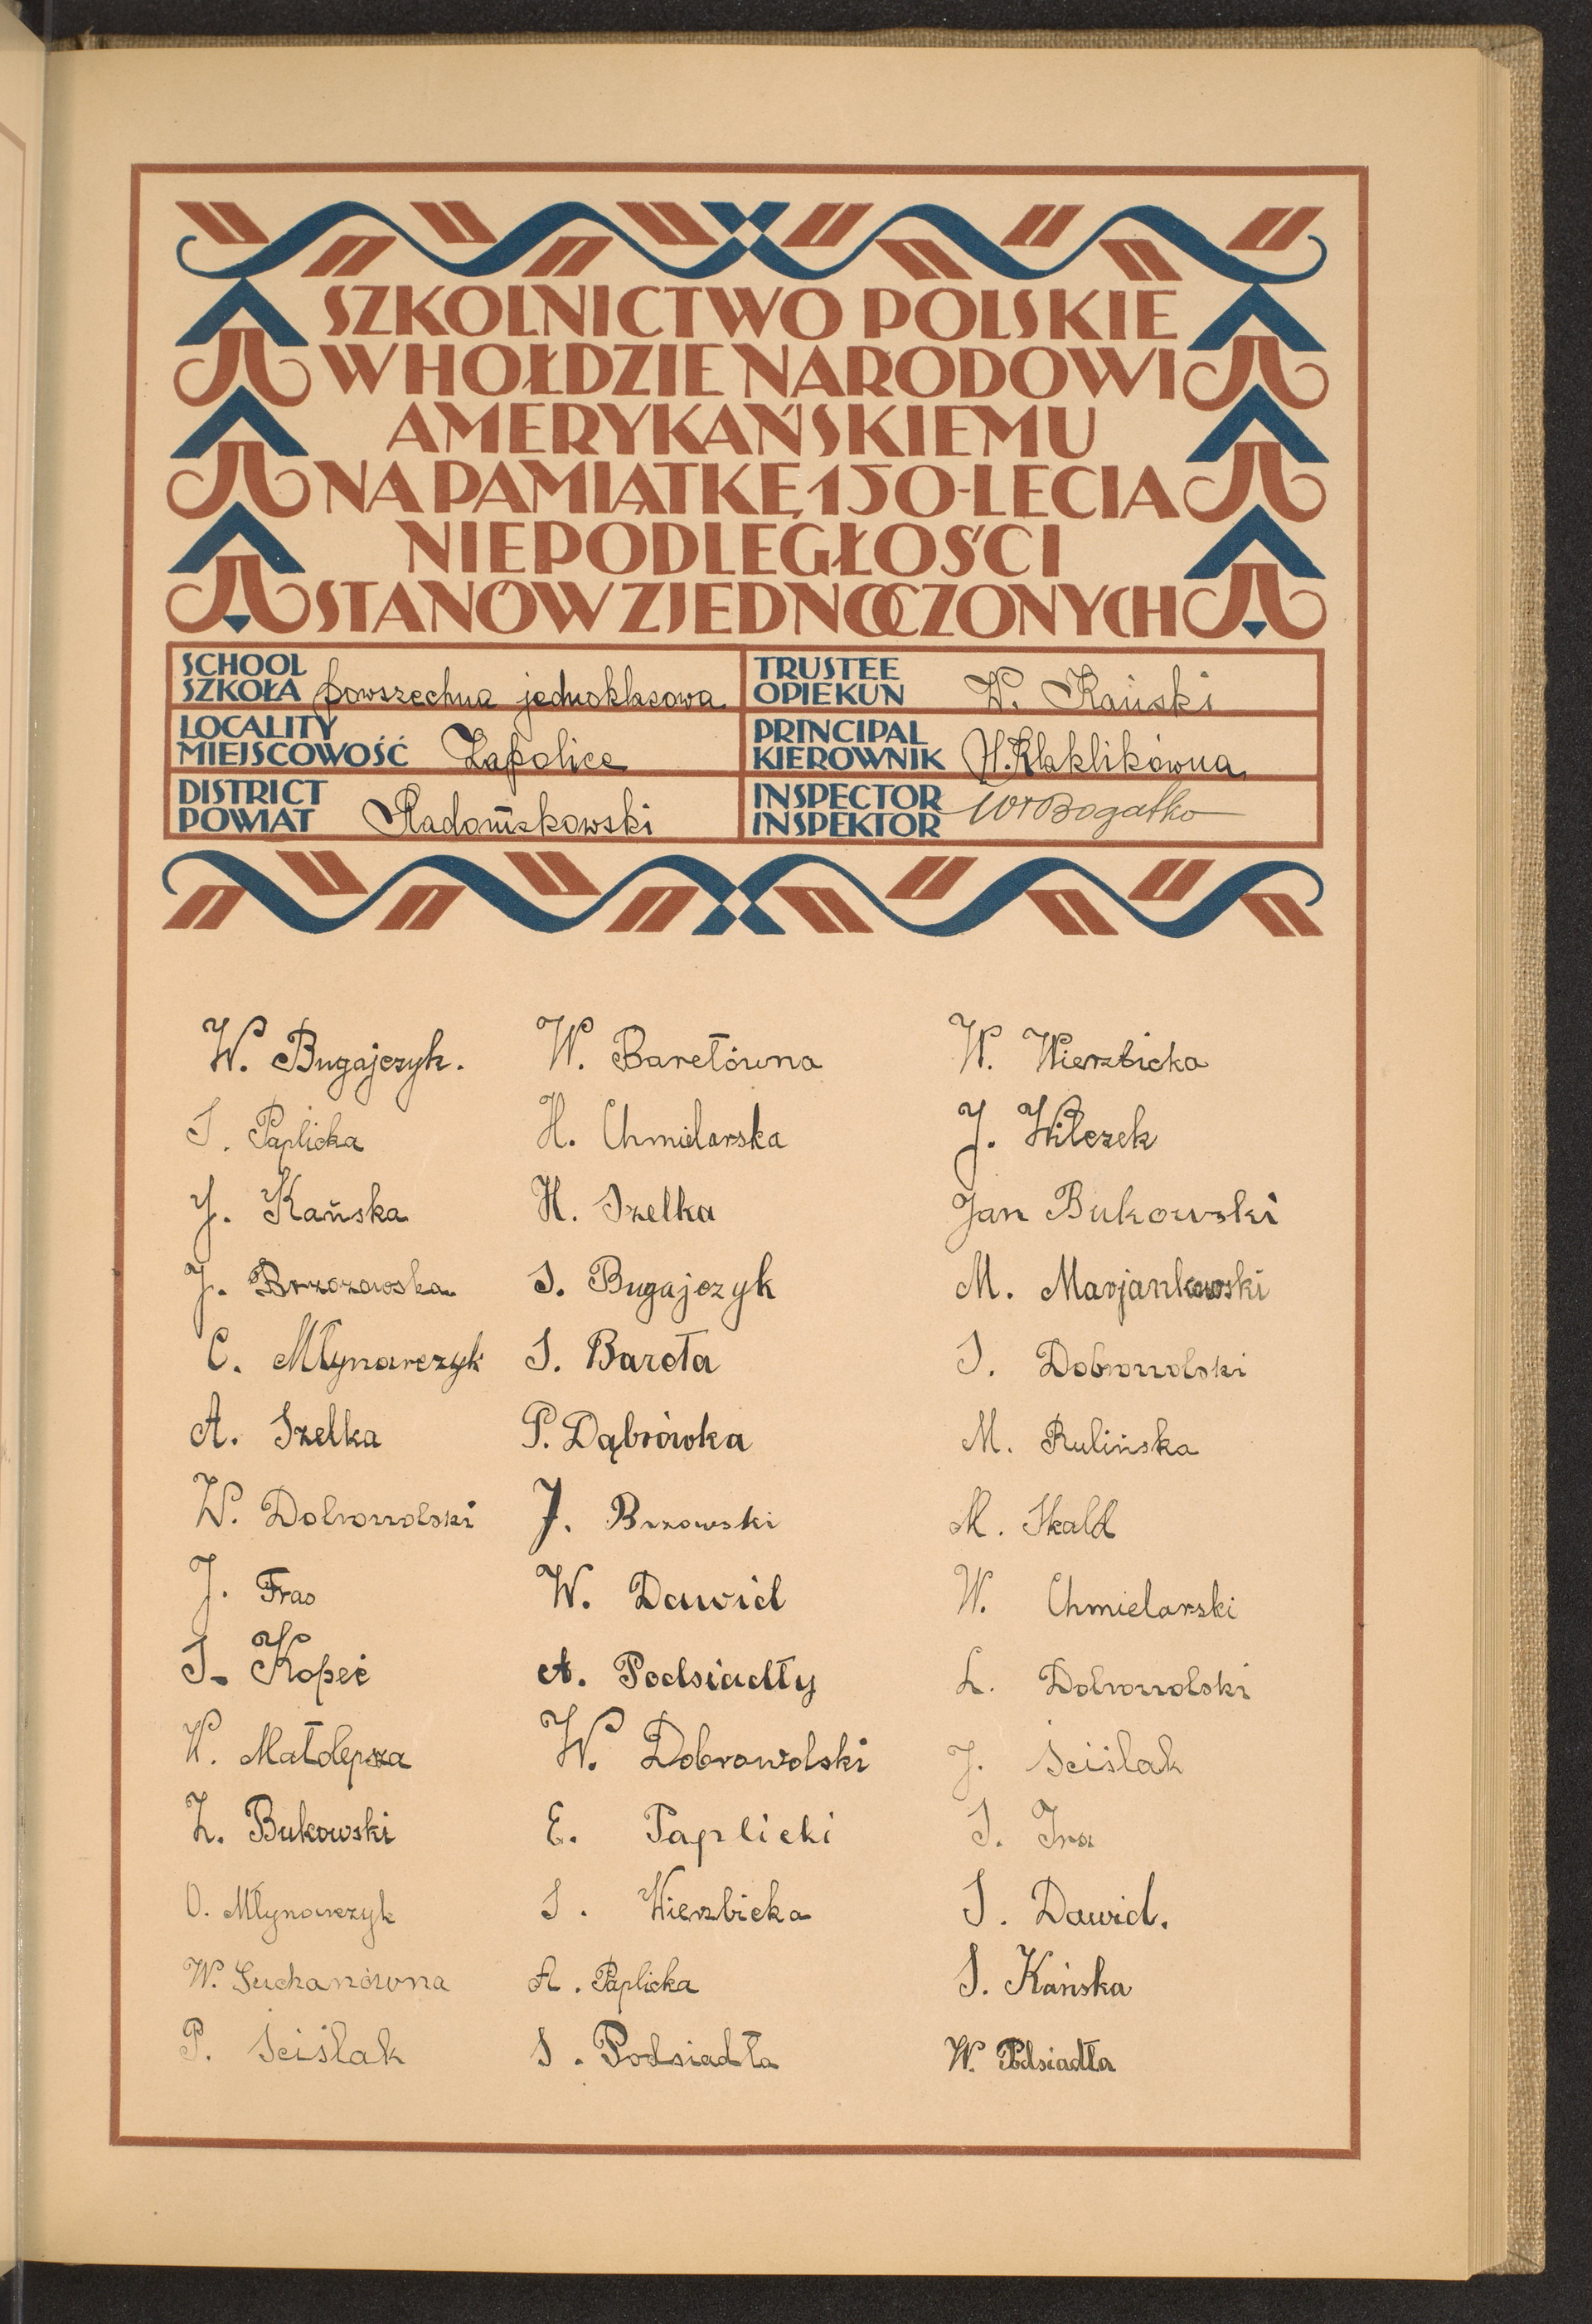 SZKOLNICTWO POLSKIE
W HOŁDZIE NARODOWI
AMERYKAŃSKIEMU
NA PAMIĄTKĘ 150-LECIA
NIEPODLEGŁOŚCI
STANÓW ZJEDNOCZONYCH
SCHOOL
SZKOŁA powszechna jednoklasowa
LOCALITY
MIEJSCOWOŚĆ Zapolice
DISTRICT
POWIAT Radomskowski
TRUSTEE
OPIEKUN W. Kański
PRINCIPAL
KIEROWNIK
INSPECTOR
INSPEKTOR Bogatko
W. Bugajczyk.
S. Paplicka
J. Kańska
J. Brzozowska
C. Młynarczyk
A. Szelka
W. Dobrowolski
J. Fras
S. Kopeć
W. Małolepsza
Z. Bukowski
O. Młynarczyk
W. Suchanówna
P. Sciślak
W. Barełówna
H. Chmielarska
H. Szelka
S. Bugajczyk
S. Bareła
P. Dąbrówka
J. Brzowski
W. Dawid
A. Podsiadły
W. Dobrowolski
E. Paplicki
S. Wierzbicka
A. Paplicka
S. Podsiadła
W. Wierzbicka
J. Wilczek
Jan Bukowski
M. Marjankowski
S. Dobrowolski
M. Rulińska
M. Skald
W. Chmielarski
L. Dobrowolski
J. Sciślak
S.
S. Dawid.
S. Kańska
W. Podsiadła